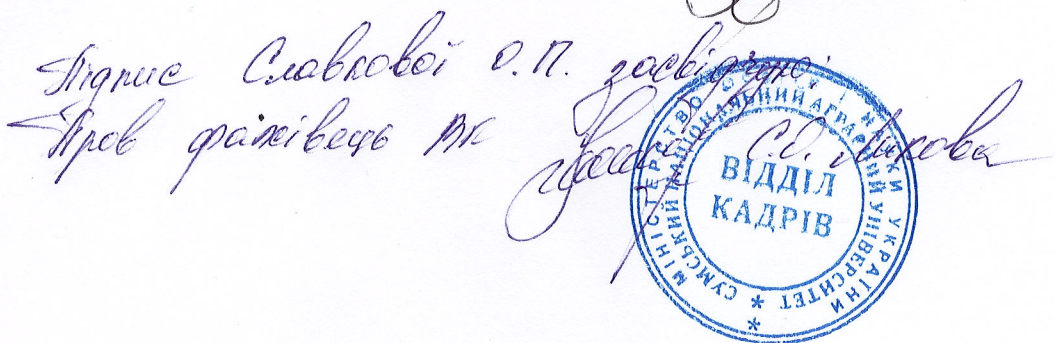 Підпис Славкової О.П. засвідчую:
Пров фахівець ВК С.О. Ликова
МІНІСТЕРСТВО ОСВІТИ І НАУКИ УКРАЇНИ *
СУМСЬКИЙ НАЦІОНАЛЬНИЙ АГРАРНИЙ УНІВЕРСИТЕТ *
ВІДДІЛ
КАДРІВ